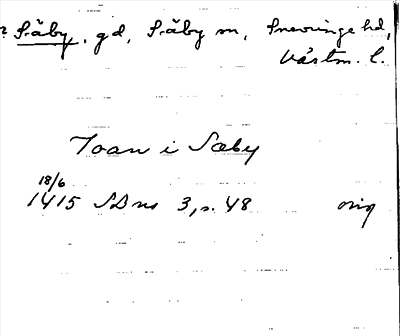 Säby, gd, Säby sn, Snevringe hd,
Västm. l.
Joan i Sæby
18/6
1415 SD ns 3, s. 48 orig